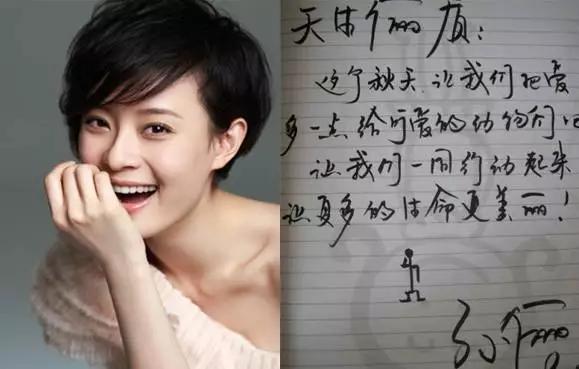 天生俪质:
这个秋天让我们把爱
多一点给可爱的动物们吧
让我们一同行动起来
让更多的生命更美丽!
孙俪